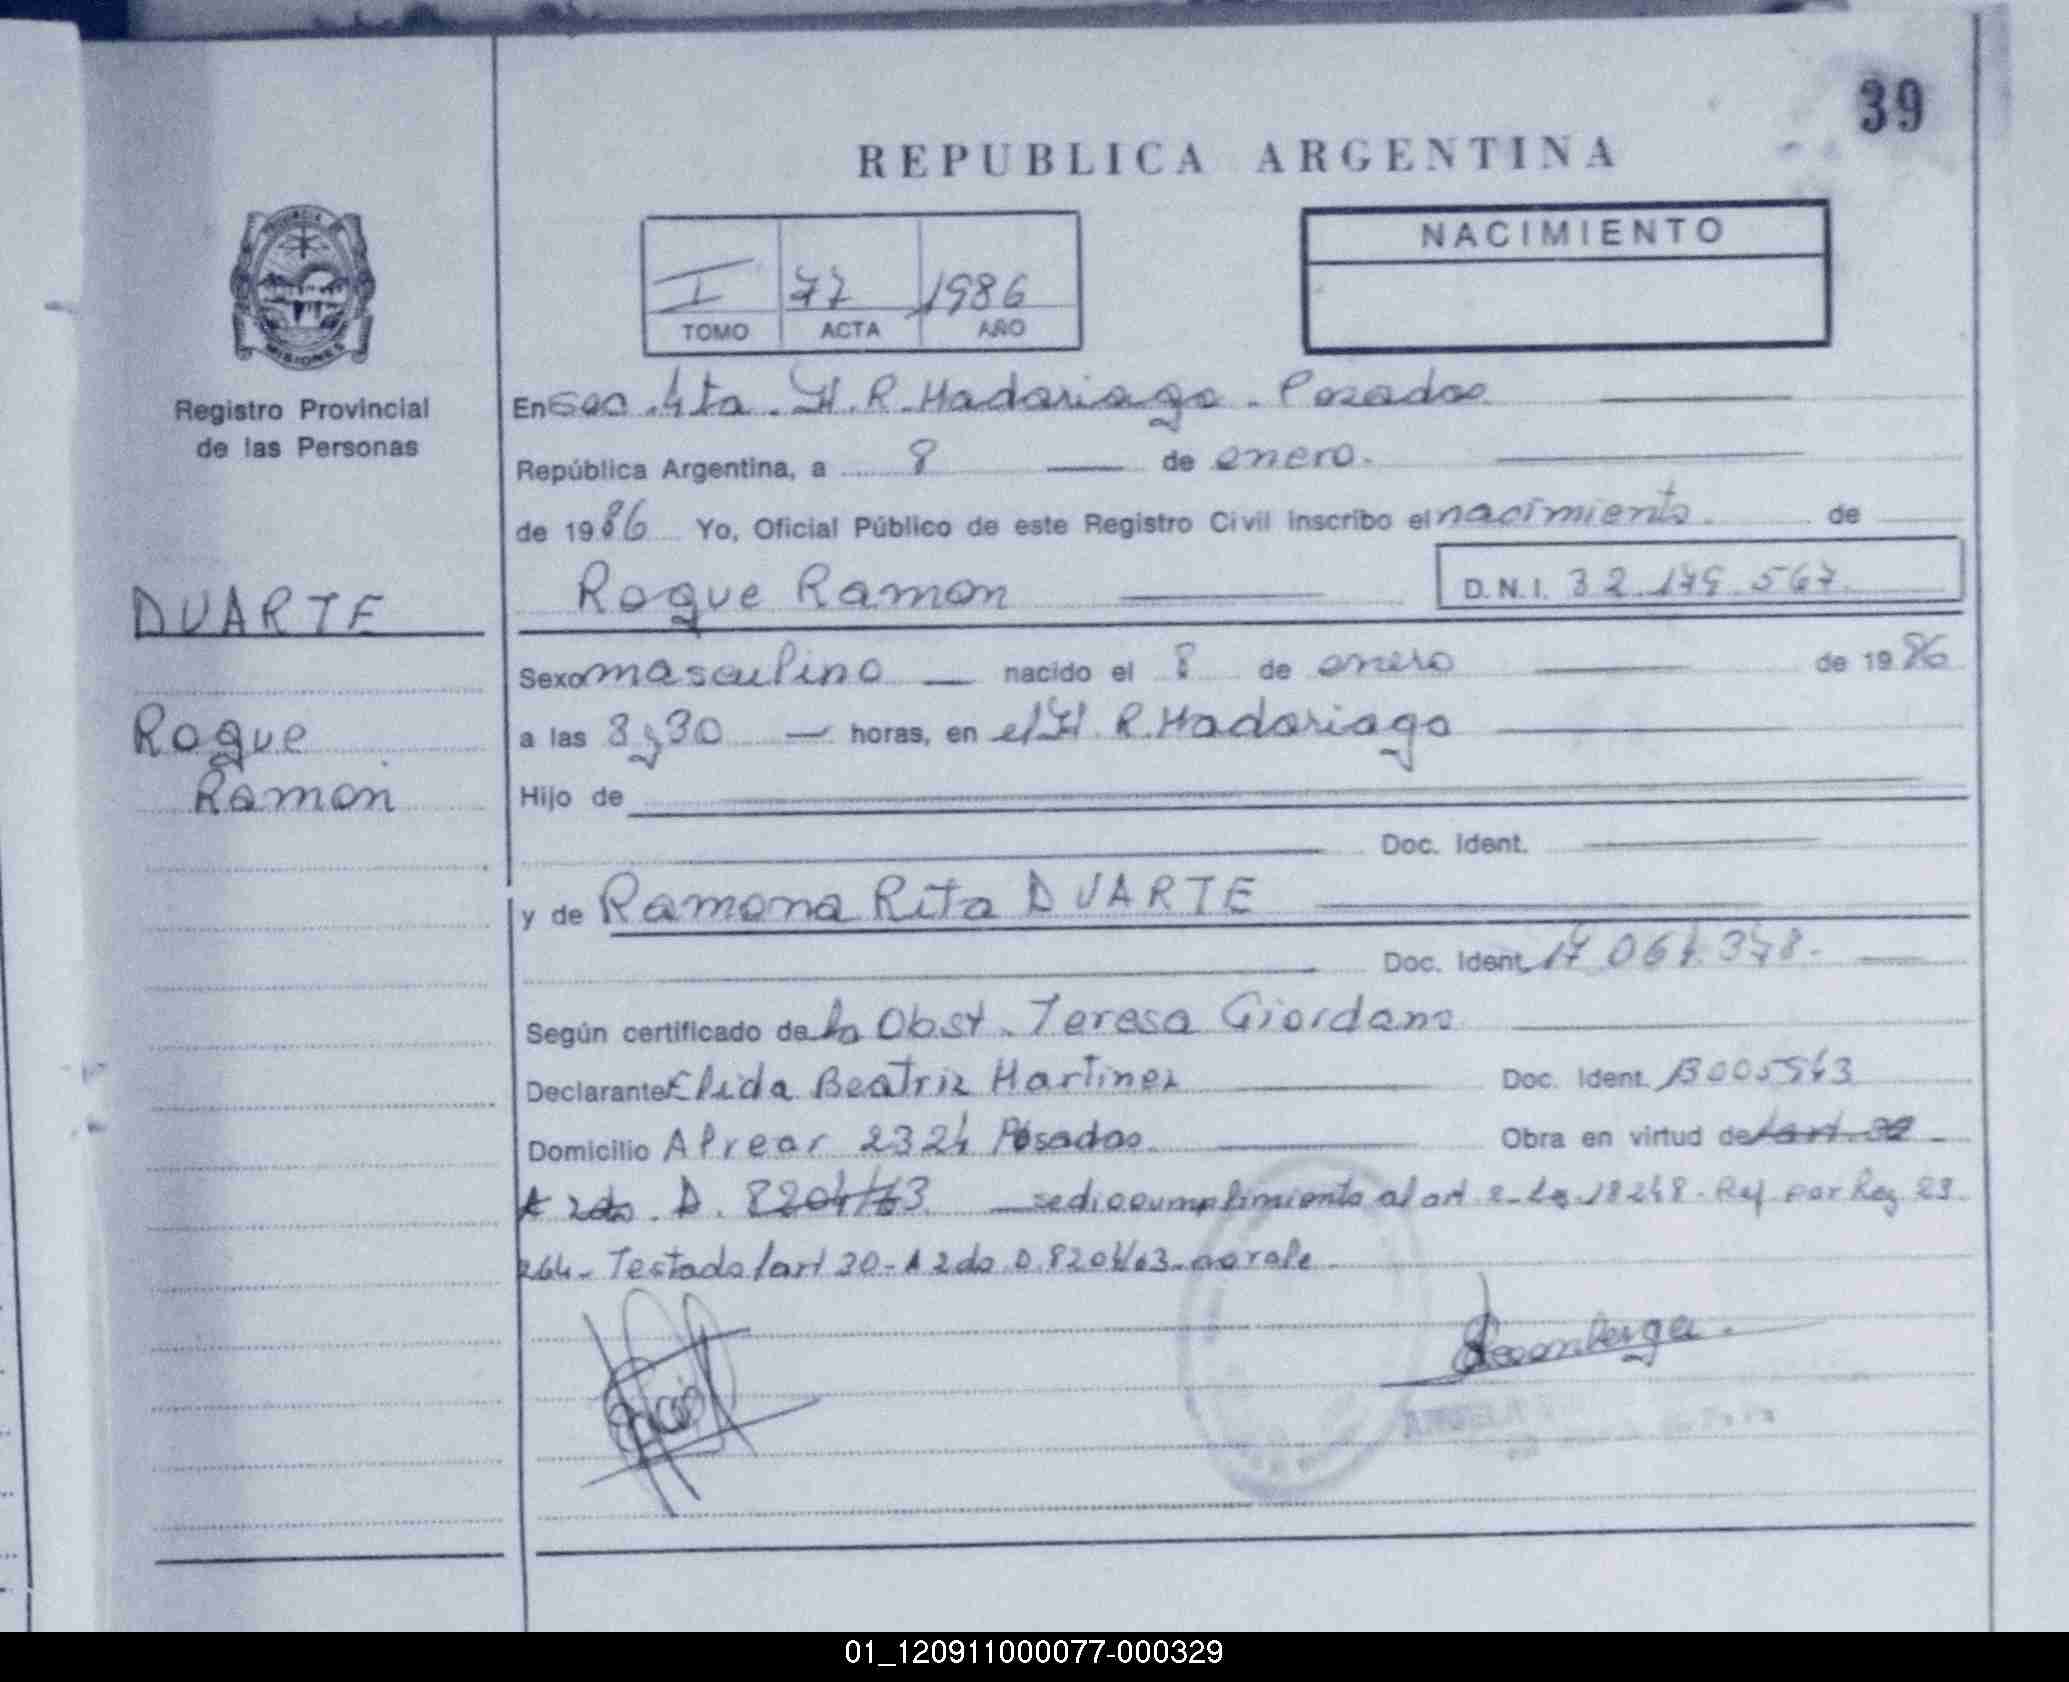 39
REPUBLICA ARGENTINA
NACIMIENTO
I 77 1986
TOMO ACTA AÑO
MISIONES
Registro Provincial
de las Personas
En Sec. 4ta. H. R. Madariaga - Posadas
República Argentina, a 8 de enero.
de 1986 Yo, Oficial Público de este Registro Civil inscribo el nacimiento. de
DUARTE
Roque Ramon D.N.I. 32.179.567.
Sexo masculino nacido el 8 de enero de 1986
Roque
a las 8 y 30 horas, en el H. R. Madariaga
Ramon
Hijo de
Doc. Ident.
y de Ramona Rita DUARTE
Doc. Ident. 17.064.378.
Según certificado de la Obst. Teresa Giordano
Declarante Elida Beatriz Martinez Doc. Ident. B005543
Domicilio Alvear 2324 Posadas Obra en virtud de l art. 30
A 2do. D. 8204/63 se dio cumplimiento al art 2- Ley 18248. Ref por Ley 23
264- Testado/art 30- A 2do D. 8204/63- no vale
ANGELA
01_120911000077-000329